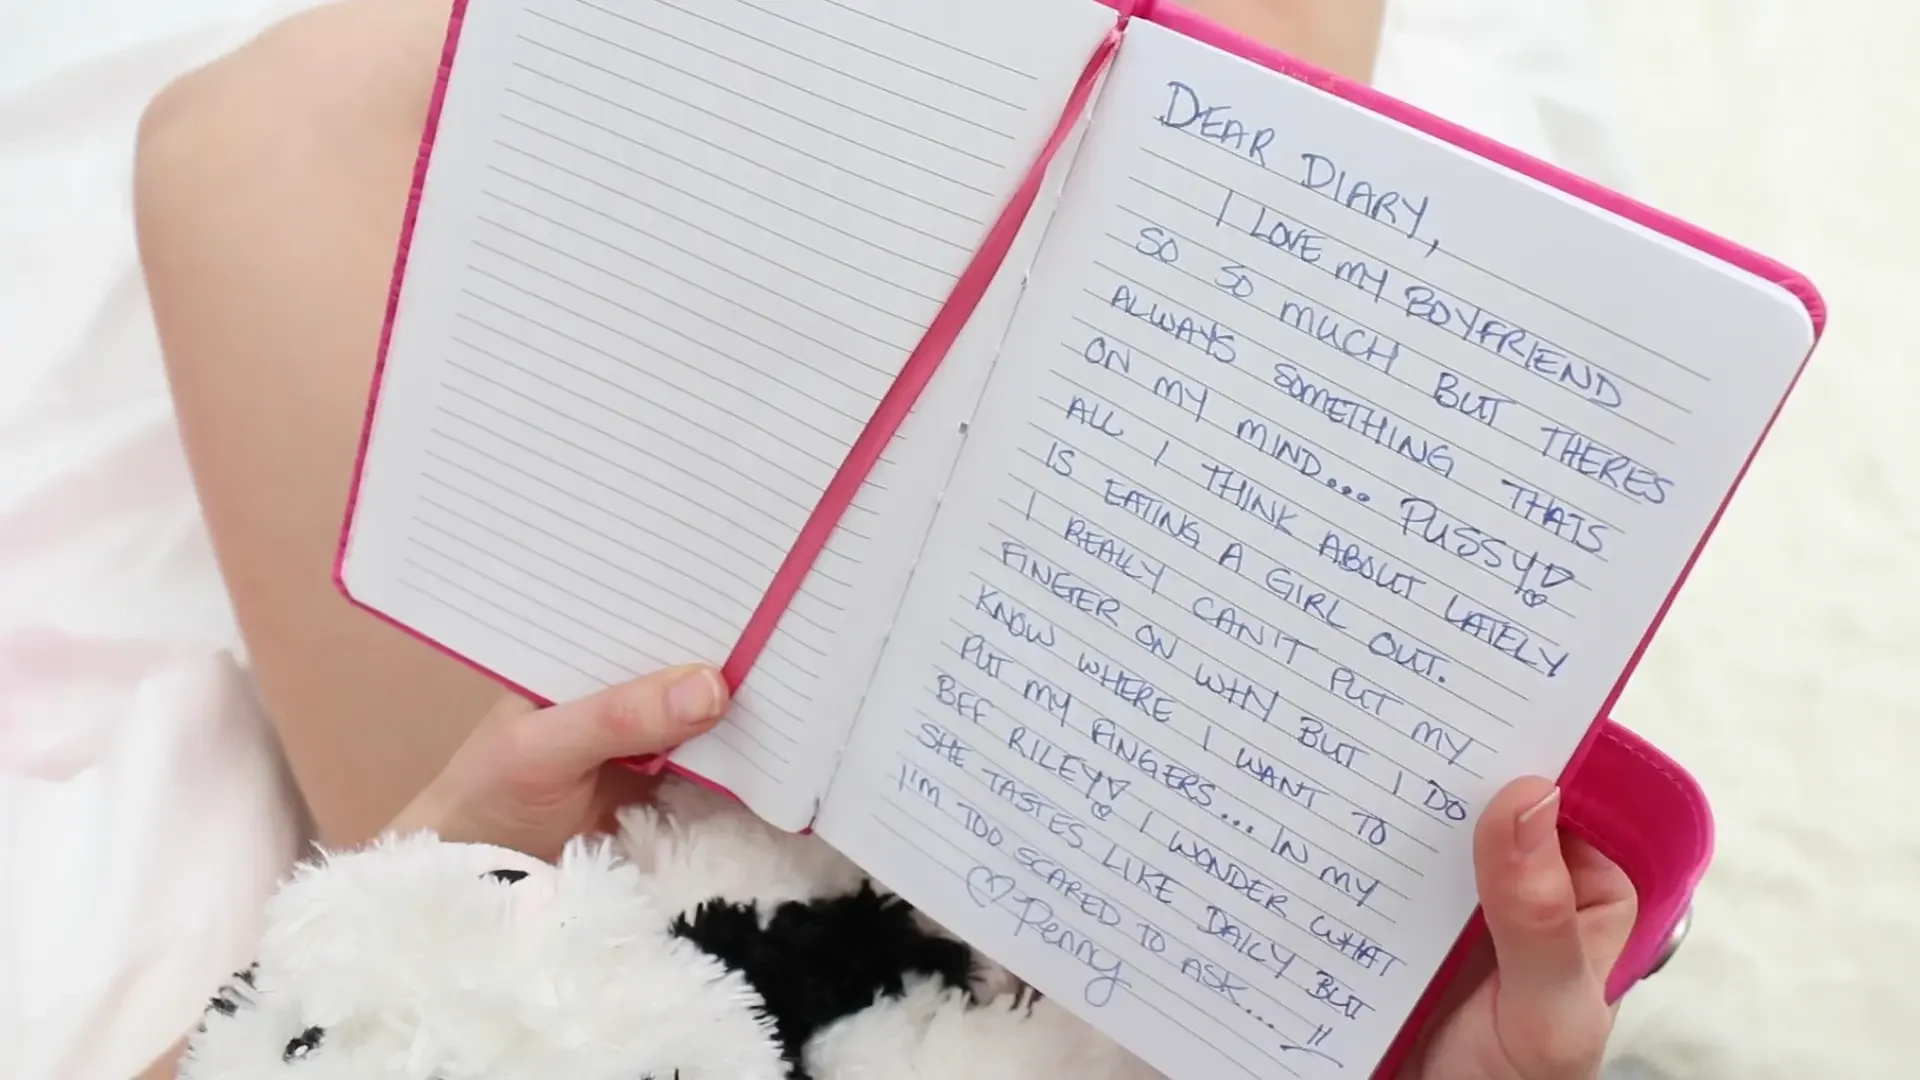 DEAR DIARY,
I LOVE MY BOYFRIEND
SO SO MUCH BUT THERES
ALWAYS SOMETHING THATS
ON MY MIND... PUSSY♡
ALL I THINK ABOUT LATELY
IS EATING A GIRL OUT.
I REALLY CAN'T PUT MY
FINGER ON WHY BUT I DO
KNOW WHERE I WANT TO
PUT MY FINGERS... IN MY
BFF RILEY♡ I WONDER WHAT
SHE TASTES LIKE DAILY BUT
I'M TOO SCARED TO ASK...!!
♡Penny